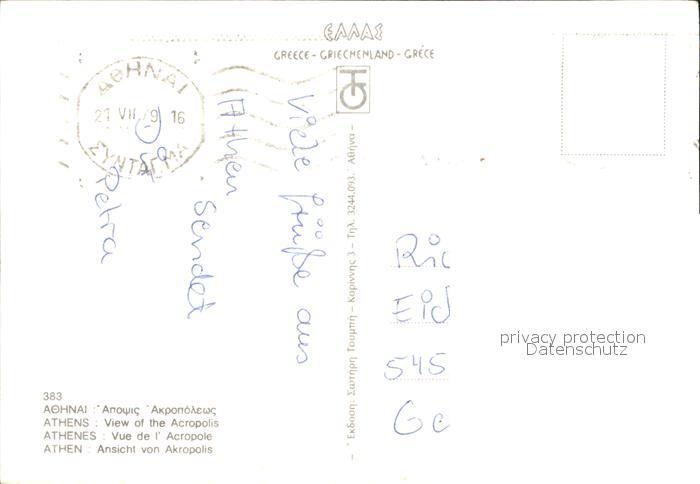 ΕΛΛΑΣ
GREECE - GRIECHENLAND - GRÈCE
ΑΘΗΝΑΙ
21 VII 79 16
ΣΥΝΤΑΓΜΑ
Viele Grüße aus
Athen
sendet
Dir
Petra
Ric
Eid
545
Ge
privacy protection
Datenschutz
Ἔκδοση: Σωτήρη Τουμπή – Κορίννης 3 – Τηλ. 3244.093. Ἀθήνα –
383
ΑΘΗΝΑΙ : Ἄποψις Ἀκροπόλεως
ATHENS : View of the Acropolis
ATHENES : Vue de l' Acropole
ATHEN : Ansicht von Akropolis